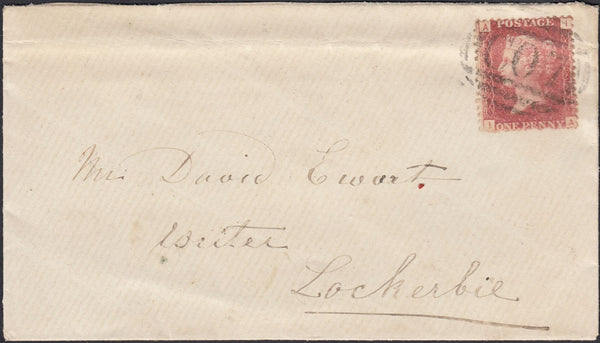 A I
POSTAGE
I A
ONE PENNY
Mr David Ewart
Writer
Lockerbie